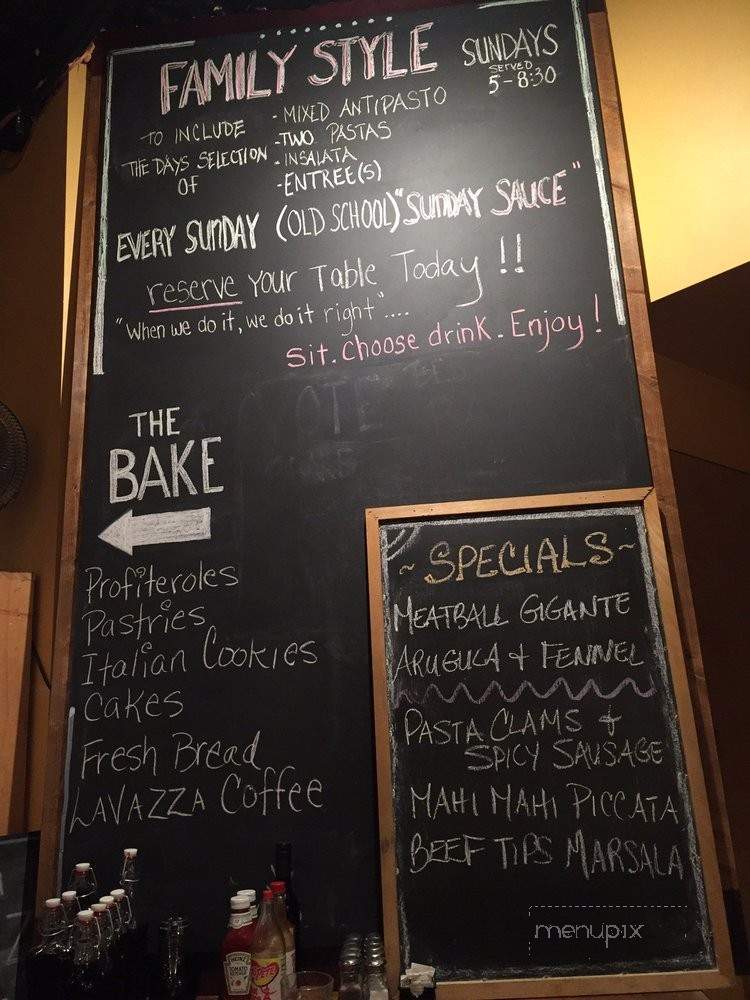 FAMILY STYLE
SUNDAYS
SERVED
5-8:30
TO INCLUDE
THE DAYS SELECTION
OF
- MIXED ANTIPASTO
-TWO PASTAS
- INSALATA
-ENTREE(S)
EVERY SUNDAY (OLD SCHOOL) "SUNDAY SAUCE"
reserve your Table Today !!
"When we do it, we do it right"....
Sit. Choose drink. Enjoy!
THE
BAKE
Profiteroles
Pastries
Italian Cookies
Cakes
Fresh Bread
LAVAZZA Coffee
~ SPECIALS ~
MEATBALL GIGANTE
ARUGULA + FENNEL
PASTA CLAMS +
SPICY SAUSAGE
MAHI MAHI PICCATA
BEEF TIPS MARSALA
HEINZ
TOMATO
KETCHUP
menupix